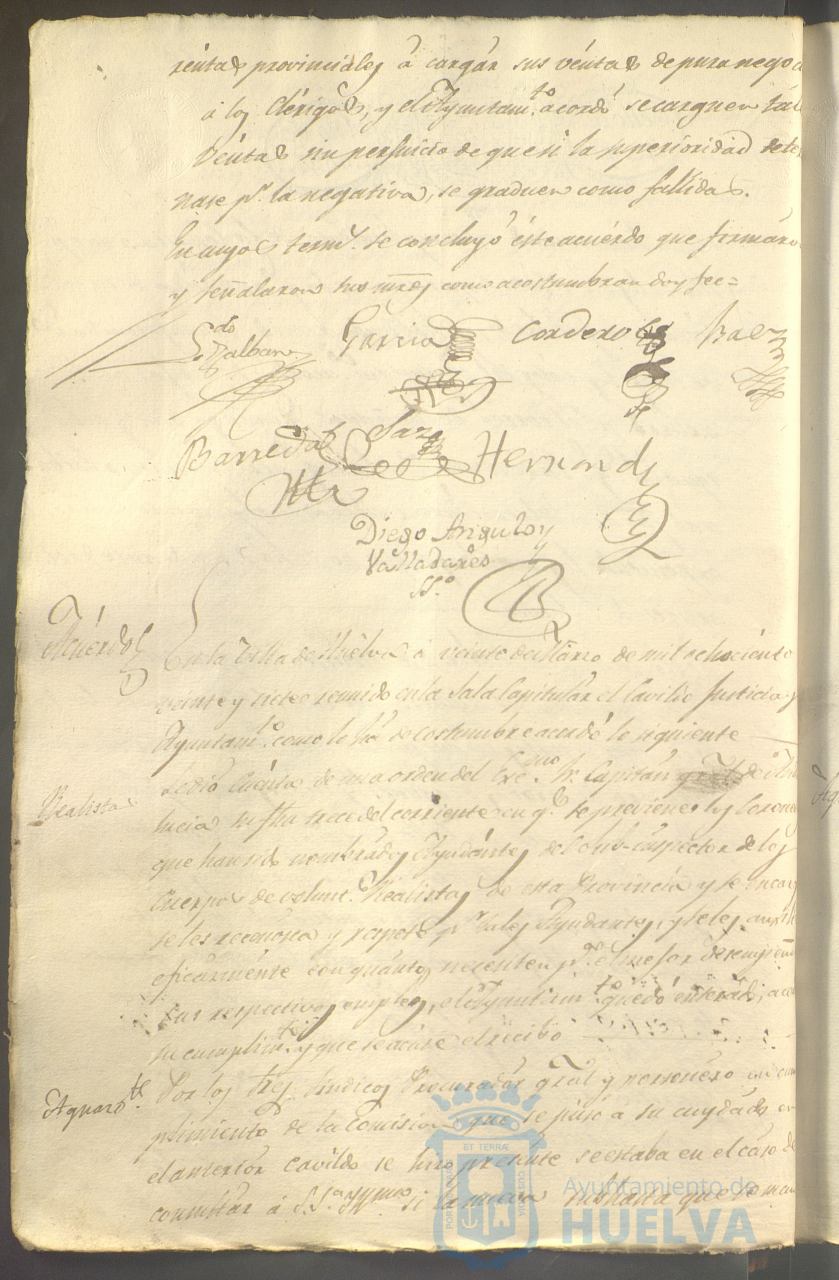 rentas provinciales á cargár sus véntas de pura nego
á los Clérigos, y el Ayuntam.to acordó se carguen tál
véntas sin perjuicio de que si la superioridad dete
nase p.r la negativa, se graduen como fallidas.
En cuyos term.s se concluyó éste acuérdo que firmáro
y señalaron sus mrds como acostumbran doy fee=
L.do Zalbán
García
Cordero
Baez
Barreda
Saz
Hernandz
Diego Angulo y
Valladares
SS.o
Acuérdo
En la Villa de Huelva á veinte de Marzo de mil ochociento
veinte y siete reunido en la Sala Capitulár el Cavildo Justicia y
Ayuntam.to como lo há de costumbre acordó lo siguiente
Realistas
se dió cuénta de una orden del Exc.mo Sr. Capitán gral de
lucia su fha trece del corriente en q.e se previene los
que han sido nombrados Ayudántes del sub-inspector de los
Cuerpos de volunt.s Realistas de esta Provincia y se encar
se les reconosca y respete p.r tales Ayudantes, y se les
eficazménte con quánto necesiten p.a el mejor desempeñ
sus respectivos empleos, el Ayuntam.to quedó enterado,
su cumplim.to y que se acuse el recibo
Aguard.te
Por los Sres. Síndicos Procuradór gral y personero en cum
plimiento de la Comisión que se puso á su cuydado en
el anteriór cavildo se hizo presente se estaba en el cáso de
consultár á S.Sa. Yllma si la nueva subhasta que se
ET TERRÆ
Ayuntamiento de
HUELVA